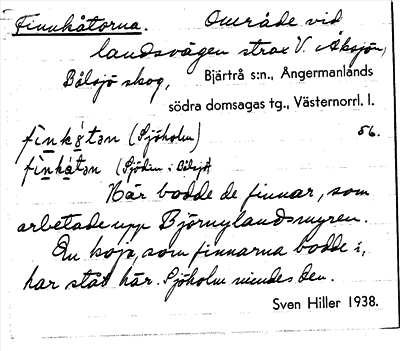 Finnkåtorna. Område vid
landsvägen strax V. Åksjön,
Bålsjö skog, Bjärtrå s:n., Ångermanlands
södra domsagas tg., Västernorrl. l.
(Sjöholm) 56.
(Sjödin i Bålsjö)
Här bodde de finnar, som
arbetade upp Björnylandsmyren.
En koja, som finnarna bodde i,
har stått här. Sjöholm minnes den.
Sven Hiller 1938.